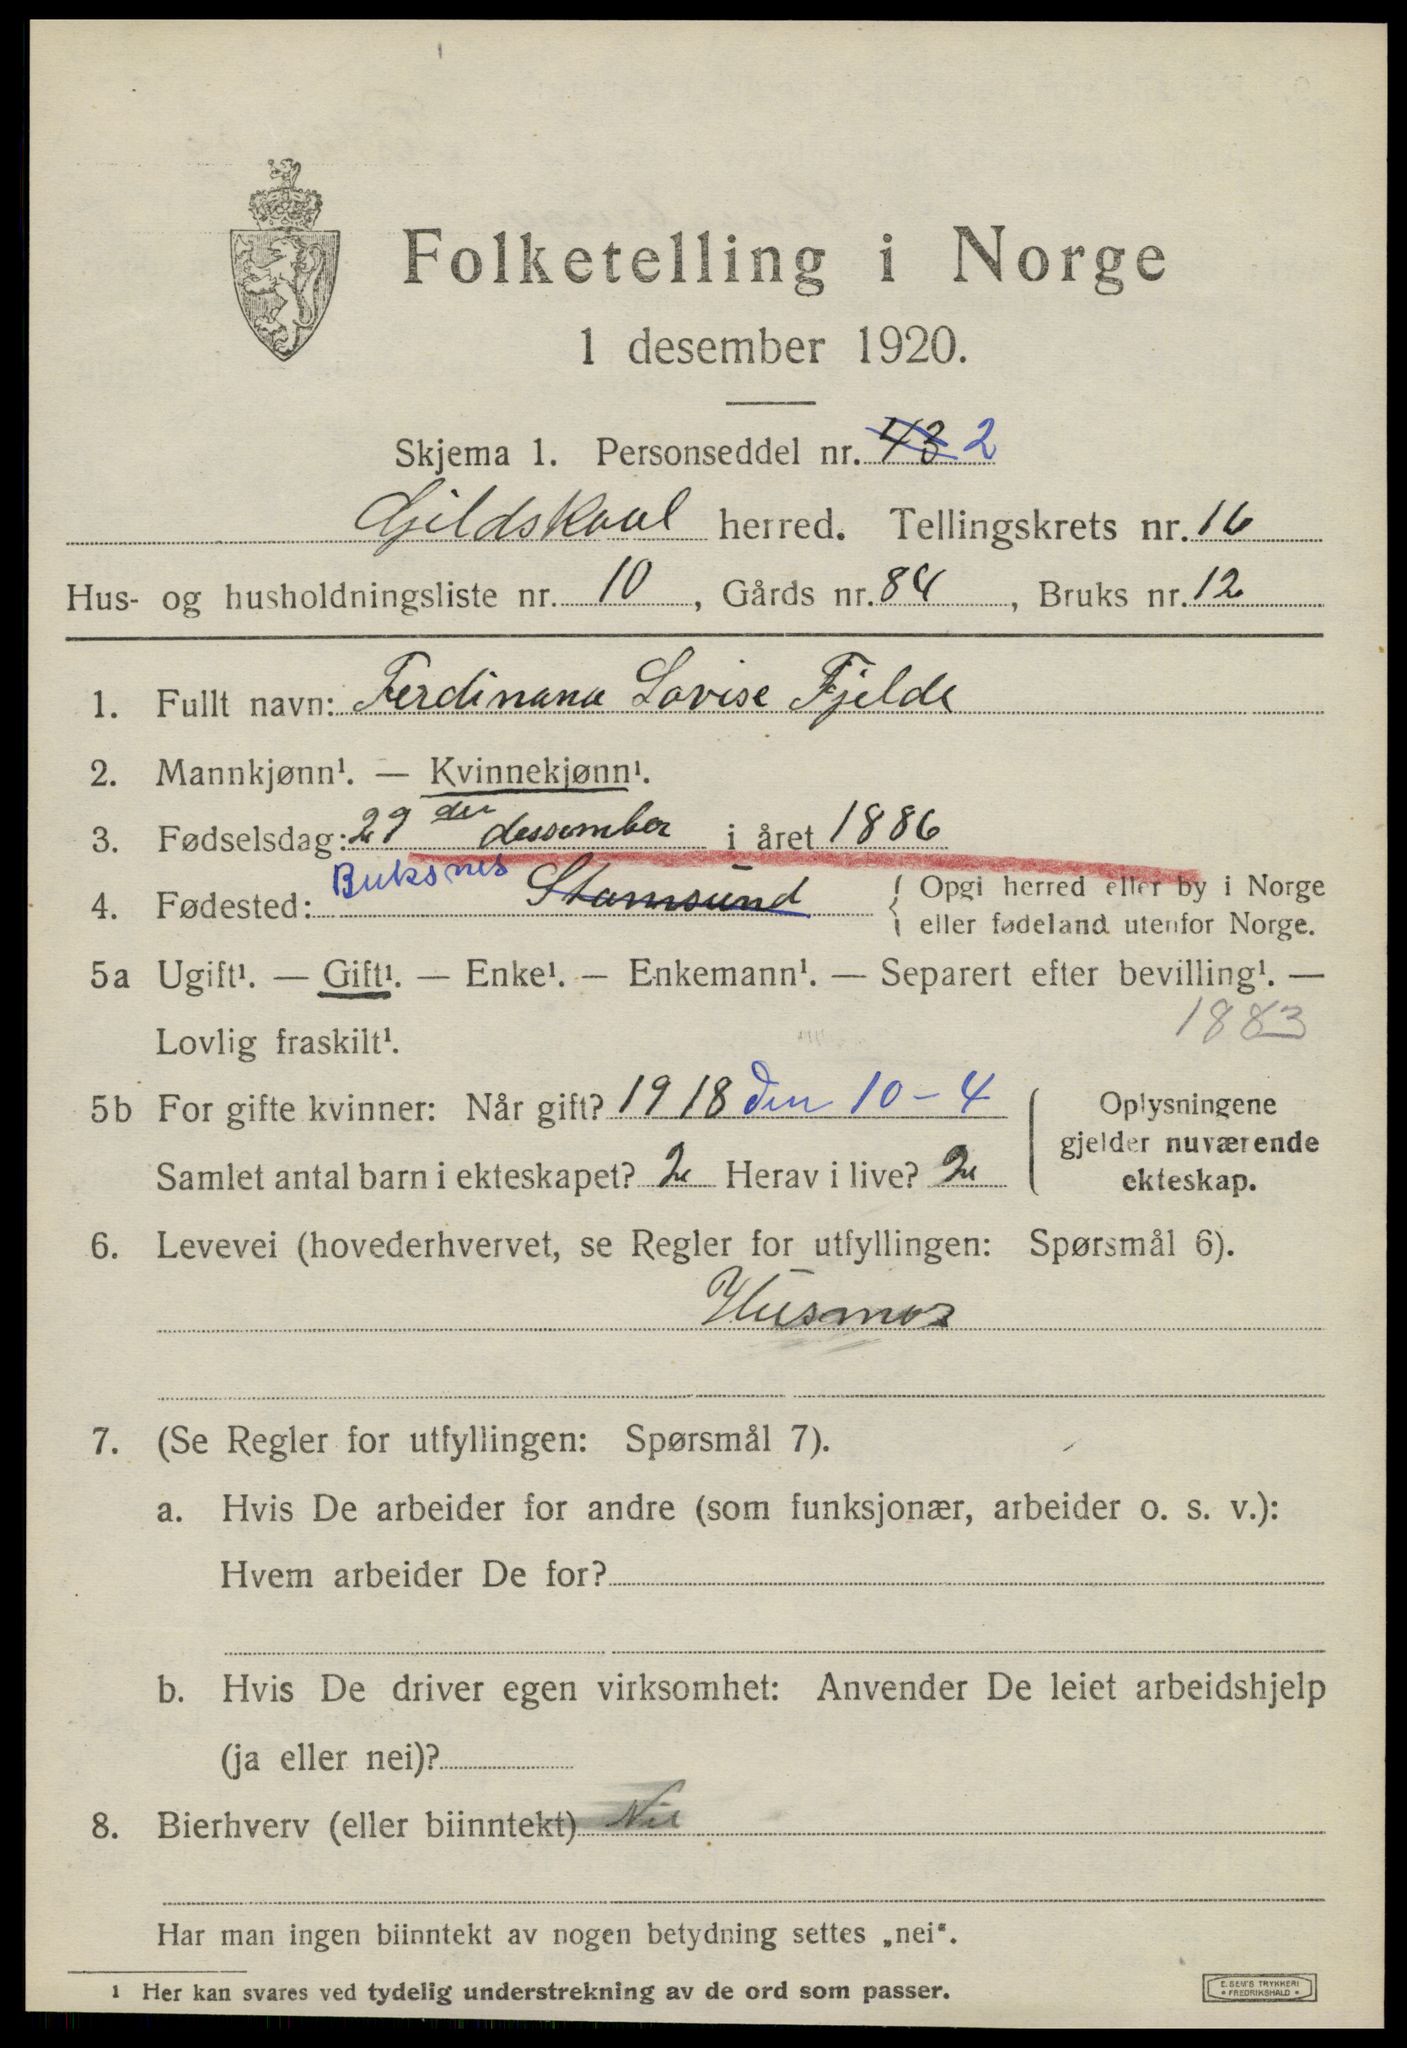 Folketelling i Norge
1 desember 1920.
Skjema 1. Personseddel nr. 43 2
Gildskaal herred. Tellingskrets nr. 16
Hus- og husholdningsliste nr. 10, Gårds nr. 84, Bruks nr. 12
1. Fullt navn: Ferdinana Lovise Fjelde
2. Mannkjønn¹. — Kvinnekjønn¹.
3. Fødselsdag: 29 den dessember i året 1886
4. Fødested: Buksnes Stamsund { Opgi herred eller by i Norge
eller fødeland utenfor Norge.
5a Ugift¹. — Gift¹. — Enke¹. — Enkemann¹. — Separert efter bevilling¹. —
Lovlig fraskilt¹. 1883
5b For gifte kvinner: Når gift? 1918 den 10 - 4
Samlet antal barn i ekteskapet? 2 Herav i live? 2
Oplysningene
gjelder nuværende
ekteskap.
6. Levevei (hovederhvervet, se Regler for utfyllingen: Spørsmål 6).
Husmor
7. (Se Regler for utfyllingen: Spørsmål 7).
a. Hvis De arbeider for andre (som funksjonær, arbeider o. s. v.):
Hvem arbeider De for?
b. Hvis De driver egen virksomhet: Anvender De leiet arbeidshjelp
(ja eller nei)?
8. Bierhverv (eller biinntekt) Nei
Har man ingen biinntekt av nogen betydning settes „nei".
¹ Her kan svares ved tydelig understrekning av de ord som passer.
E. SEM'S TRYKKERI
• FREDRIKSHALD •